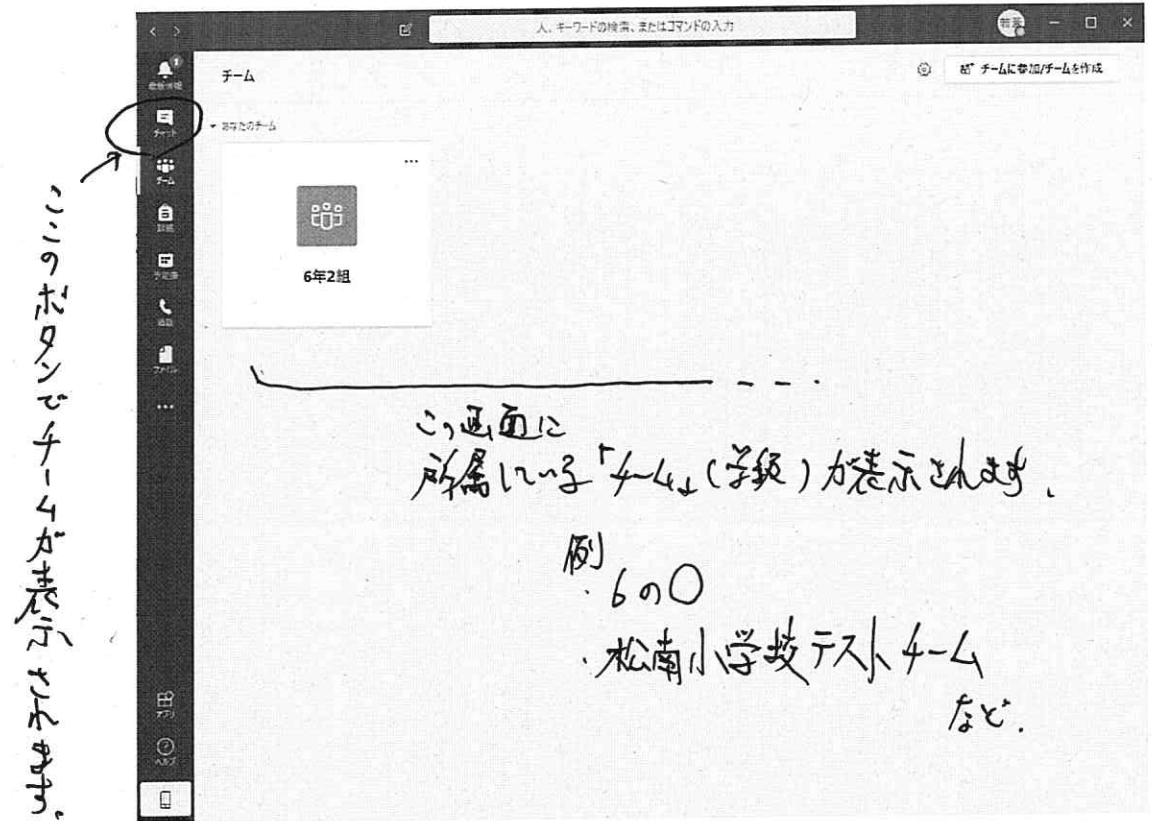 人、キーワードの検索、またはコマンドの入力
若葉
最新情報
1
チャット
チーム
課題
予定表
通話
ファイル
アプリ
ヘルプ
チーム
チームに参加/チームを作成
あなたのチーム
6年2組
ここのボタンでチームが表示されます。
この画面に
所属している「チーム」(学級)が表示されます.
例
・6の〇
・松南小学校テストチーム
など.